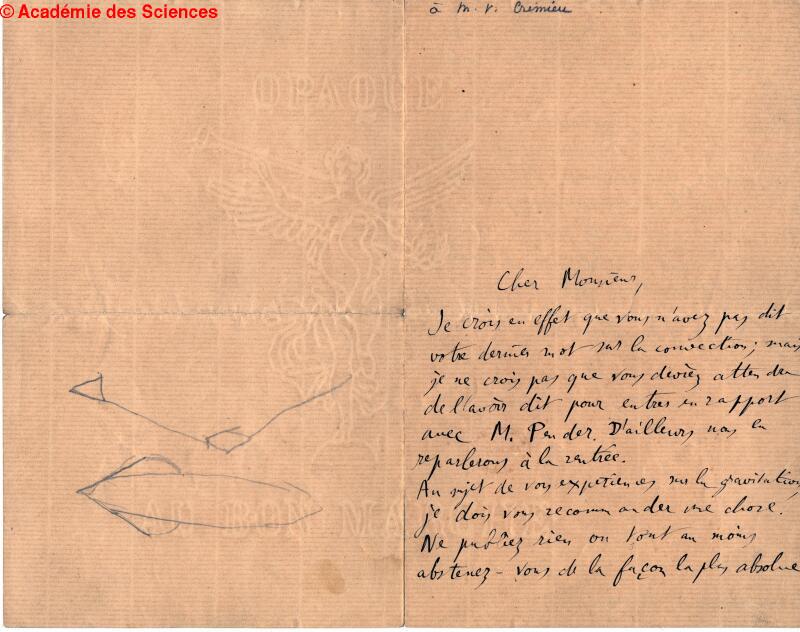 © Académie des Sciences
à M. V. Crémieu
OPAQUE
Cher Monsieur,
Je crois en effet que vous n'avez pas dit
votre dernier mot sur la convection; mais
je ne crois pas que vous deviez attendre
de l'avoir dit pour entrer en rapport
avec M. Pender. D'ailleurs nous en
reparlerons à la rentrée.
Au sujet de vos expériences sur la gravitation,
je dois vous recommander une chose.
Ne publiez rien ou tout au moins
abstenez-vous de la façon la plus absolue
AU BON MARCHÉ